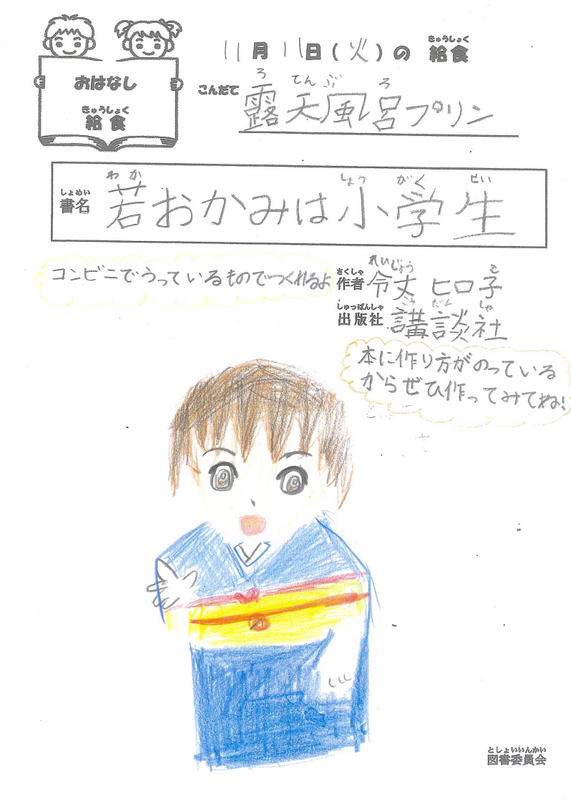 11月11日(火)の給食
きゅうしょく
おはなし
きゅうしょく
給食
こんだて
ろてんぶろ
露天風呂プリン
しょめい
書名
わかしょうがくせい
若おかみは小学生
コンビニでうっているものでつくれるよ
さくしゃ
作者
れいじょうこ
令丈 ヒロ子
しゅっぱんしゃ
出版社
こうだんしゃ
講談社
本に作り方がのっている
からぜひ作ってみてね!
としょいいんかい
図書委員会